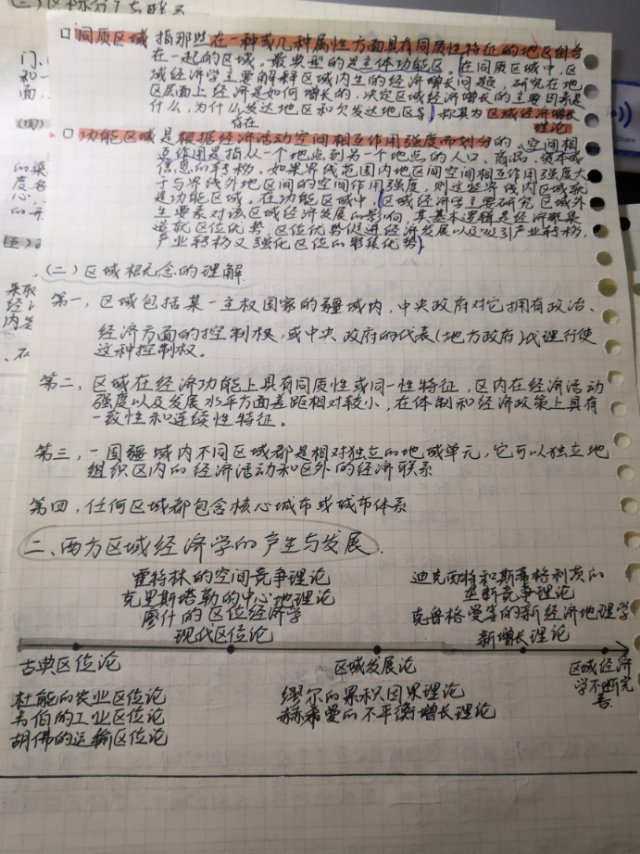 □同质区域 指那些在一种或几种属性方面具有同质性特征的地区组合
在一起的区域。最典型的是主体功能区。在同质区域中,区
域经济学主要解释区域内生的经济增长问题,研究在地
区层面上经济是如何增长的,决定区域经济增长的主要因素是
什么,为什么发达地区和欠发达地区等)称其为区域经济增长
存在
理论
□功能区域是根据经济活动空间相互作用强度而划分的。空间相
互作用是指从一个地点到另一个地点的人口、商品、资本或
信息的转移。如果界线范围内地区间空间相互作用强度大
于与界线外地区间的空间作用强度,则这些界线内区域就
是功能区域。在功能区域中,(区域经济学主要研究区域外
生要素对该区域经济发展的影响,其基本逻辑是经济聚集
造就区位优势,区位优势促进经济发展以及吸引产业转移,
产业转移又强化区位的聚集优势)
(二)区域概念的理解
第一,区域包括某一主权国家的疆域内,中央政府对它拥有政治、
经济方面的控制权,或中央政府的代表(地方政府)代理行使
这种控制权。
第二,区域在经济功能上具有同质性或同一性特征,区内在经济活动
强度以及发展水平方面差距相对较小,在体制和经济政策上具有
一致性和连续性特征。
第三,一国疆域内不同区域都是相对独立的地域单元,它可以独立地
组织区内的经济活动和区外的经济联系
第四,任何区域都包含核心城市或城市体系
二、西方区域经济学的产生与发展.
霍特林的空间竞争理论
克里斯塔勒的中心地理论
廖什的区位经济学
现代区位论
迪克西特和斯蒂格利茨的
垄断竞争理论
克鲁格曼等的新经济地理学
新增长理论
古典区位论
区域发展论
区域经济
学不断完
善
杜能的农业区位论
韦伯的工业区位论
胡佛的运输区位论
缪尔的累积因果理论
赫希曼的不平衡增长理论